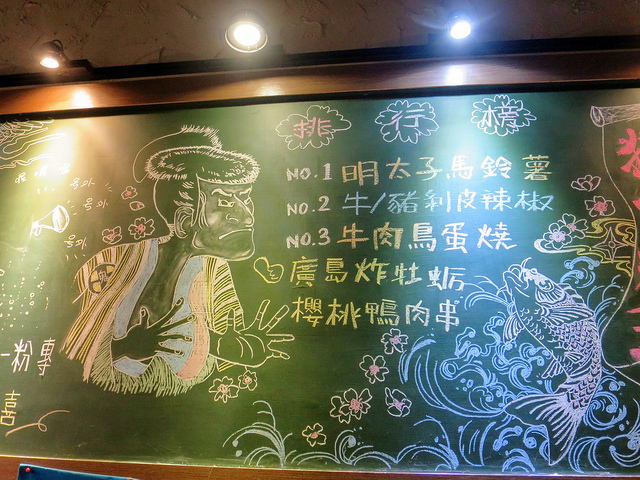 排行榜
NO.1 明太子馬鈴薯
NO.2 牛/豬剝皮辣椒
NO.3 牛肉鳥蛋燒
廣島炸牡蛎
櫻桃鴨肉串
号外
号外
号外
一粉專
喜